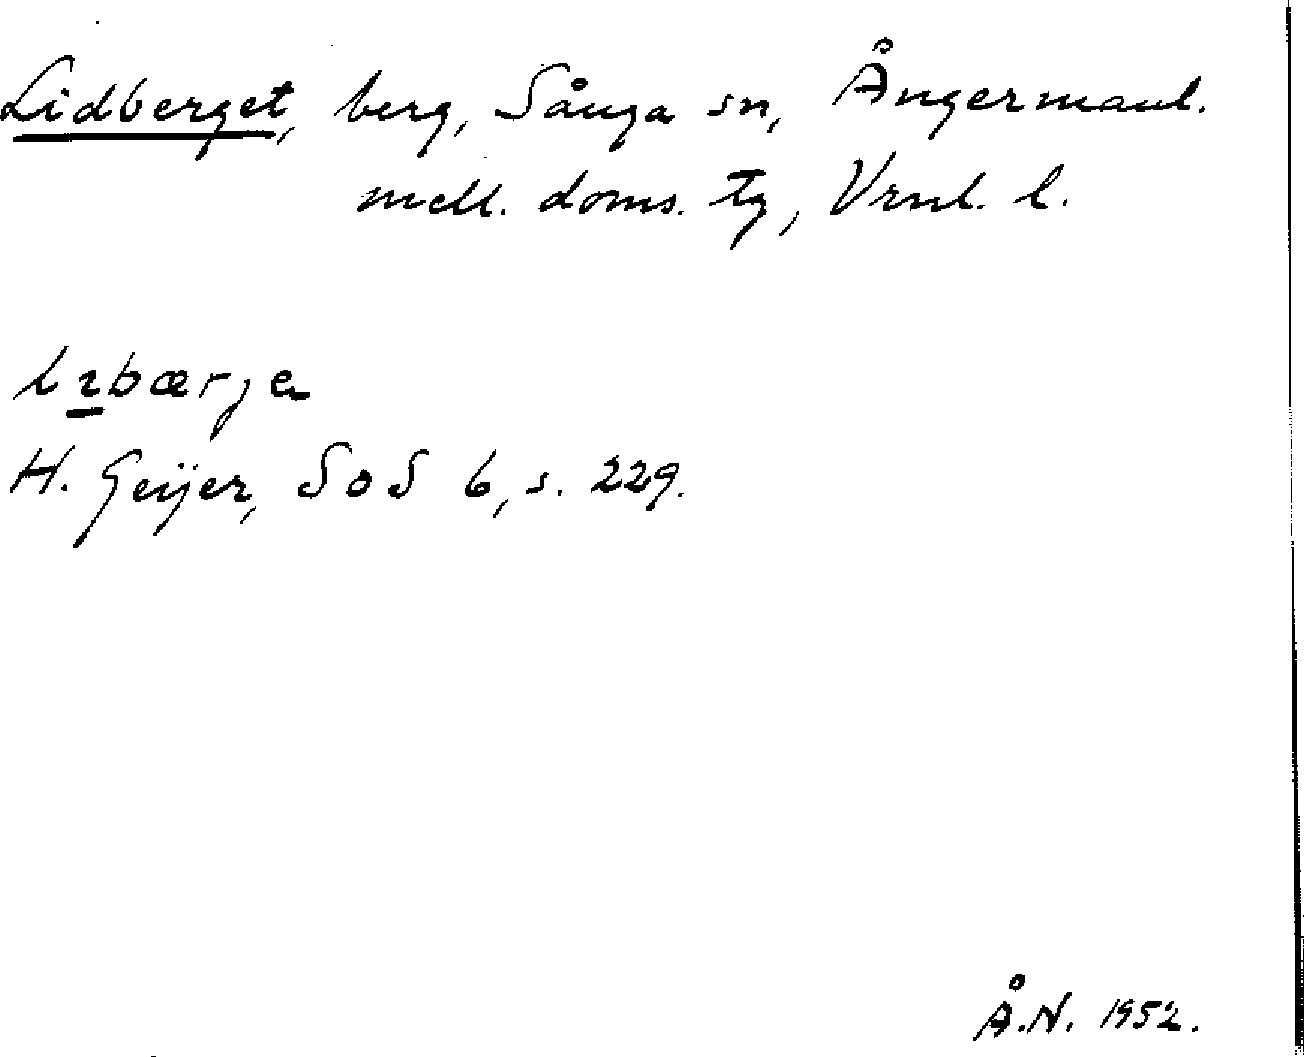 Lidberget, berg, Sånga sn, Ångermanl.
mell. doms. tg, Vrnl. l.
lɩbærjeͅ
H. Geijer, SoS 6, s. 229.
Å.N. 1952.